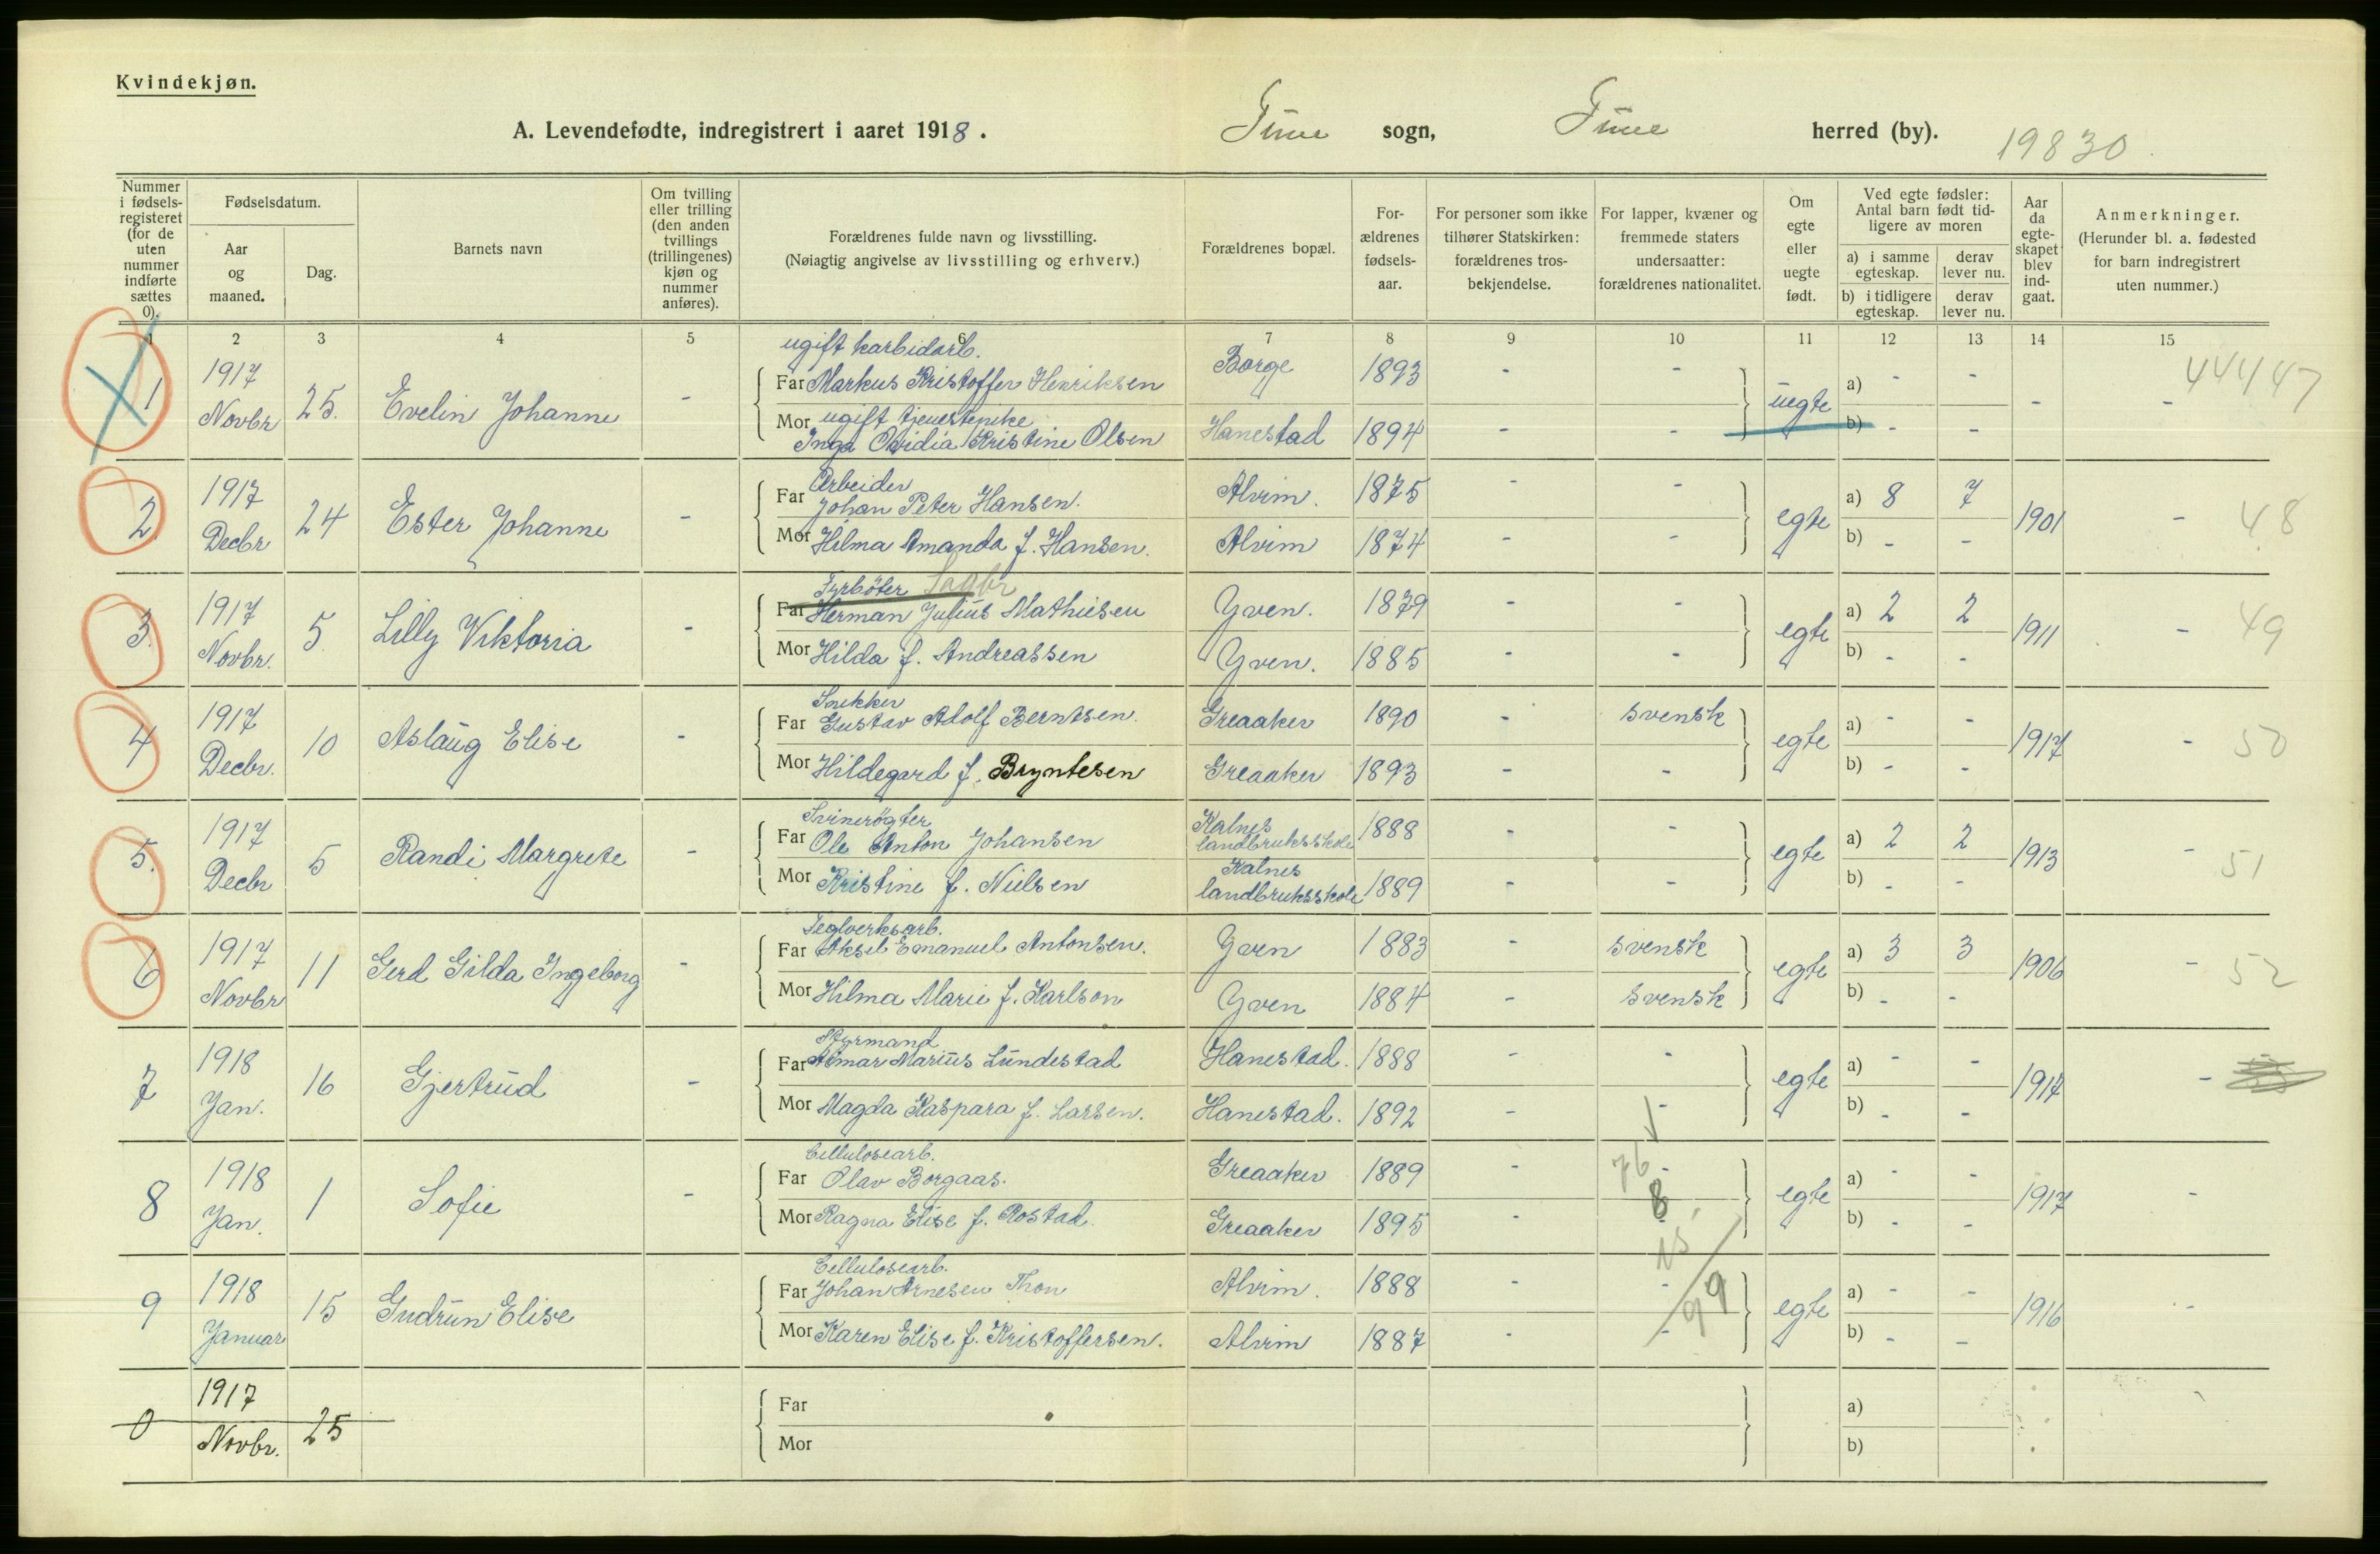 Kvindekjøn.
A. Levendefødte, indregistrert i aaret 1918. Tune sogn, Tune herred (by). 19830
Nummer i fødsels-registeret (for de uten nummer indførte sættes 0).
Fødselsdatum.
Aar og maaned.
Dag.
Barnets navn
Om tvilling eller trilling (den anden tvillings (trillingenes) kjøn og nummer anføres).
Forældrenes fulde navn og livsstilling.
(Nøiagtig angivelse av livsstilling og erhverv.)
Forældrenes bopæl.
For-ældrenes fødsels-aar.
For personer som ikke tilhører Statskirken: forældrenes tros-bekjendelse.
For lapper, kvæner og fremmede staters undersaatter: forældrenes nationalitet.
Om egte eller uegte født.
Ved egte fødsler: Antal barn født tid-ligere av moren
a) i samme egteskap.
derav lever nu.
b) i tidligere egteskap.
derav lever nu.
Aar da egte-skapet blev ind-gaat.
Anmerkninger.
(Herunder bl. a. fødested for barn indregistrert uten nummer.)
1 2 3 4 5 6 7 8 9 10 11 12 13 14 15
ugift karbidarb.
1 1917 Novbr 25. Evelin Johanne - Far Markus Kristoffer Henriksen Borge 1893 - - uegte a) - - - - 44447
Mor ugift tjenestepike
Inga Ovidia Kristine Olsen Hanestad 1894 - - b) - -
Arbeider
2. 1917 Decbr 24 Ester Johanne - Far Johan Peter Hansen. Alvim. 1875 - - egte a) 8 7 1901 - 48
Mor Hilma Amanda f. Hansen. Alvim 1874 - - b) - -
Fyrbøter Sagbr
3. 1917 Novbr. 5. Lilly Viktoria - Far Herman Julius Mathiesen Yven. 1879 - - egte a) 2 2 1911 - 49
Mor Hilda f. Andreassen Yven. 1885 - - b) - -
Snekker
4 1917 Decbr. 10 Aslaug Elise - Far Gustav Adolf Berntsen. Greaaker 1890 - svensk egte a) - - 1917 - 50
Mor Hildegard f. Bryntesen Greaaker 1893 - - b) - -
Svinerøgter
5. 1917 Decbr 5 Randi Margrete - Far Ole Anton Johansen Kalnes landbruksskole 1888 - - egte a) 2 2 1913 - 51
Mor Kristine f. Nielsen Kalnes landbruksskole 1889 - - b) - -
Teglverksarb.
6 1917 Novbr 11 Gerd Gilda Ingeborg - Far Aksel Emanuel Antonsen. Yven 1883 - svensk egte a) 3 3 1906 - 52
Mor Hilma Marie f. Karlson Yven 1884 - svensk b) - -
Styrmand
7 1918 Jan. 16 Gjertrud - Far Almar Marius Lundestad Hanestad. 1888 - - egte a) - - 1917 -
Mor Magda Kaspara f. Larsen. Hanestad. 1892 - - b) - -
Cellulosearb.
8 1918 Jan. 1 Sofie - Far Olav Borgaas. Greaaker 1889 - 76 - egte a) - - 1917 -
8
Mor Ragna Elise f. Rostad. Greaaker 1895 - - b) - -
Cellulosearb.
9 1918 Januar 15 Gudrun Elise Far Johan Arnesen Thon Alvim. 1888 - - egte a) - - 1916 -
99
Mor Karen Elise f. Kristoffersen. Alvim 1887 - - b) - -
0 1917 Novbr. 25 Far a)
Mor b)